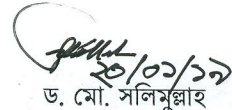 ২০/০১/১৯
ড. মো. সলিমুল্লাহ